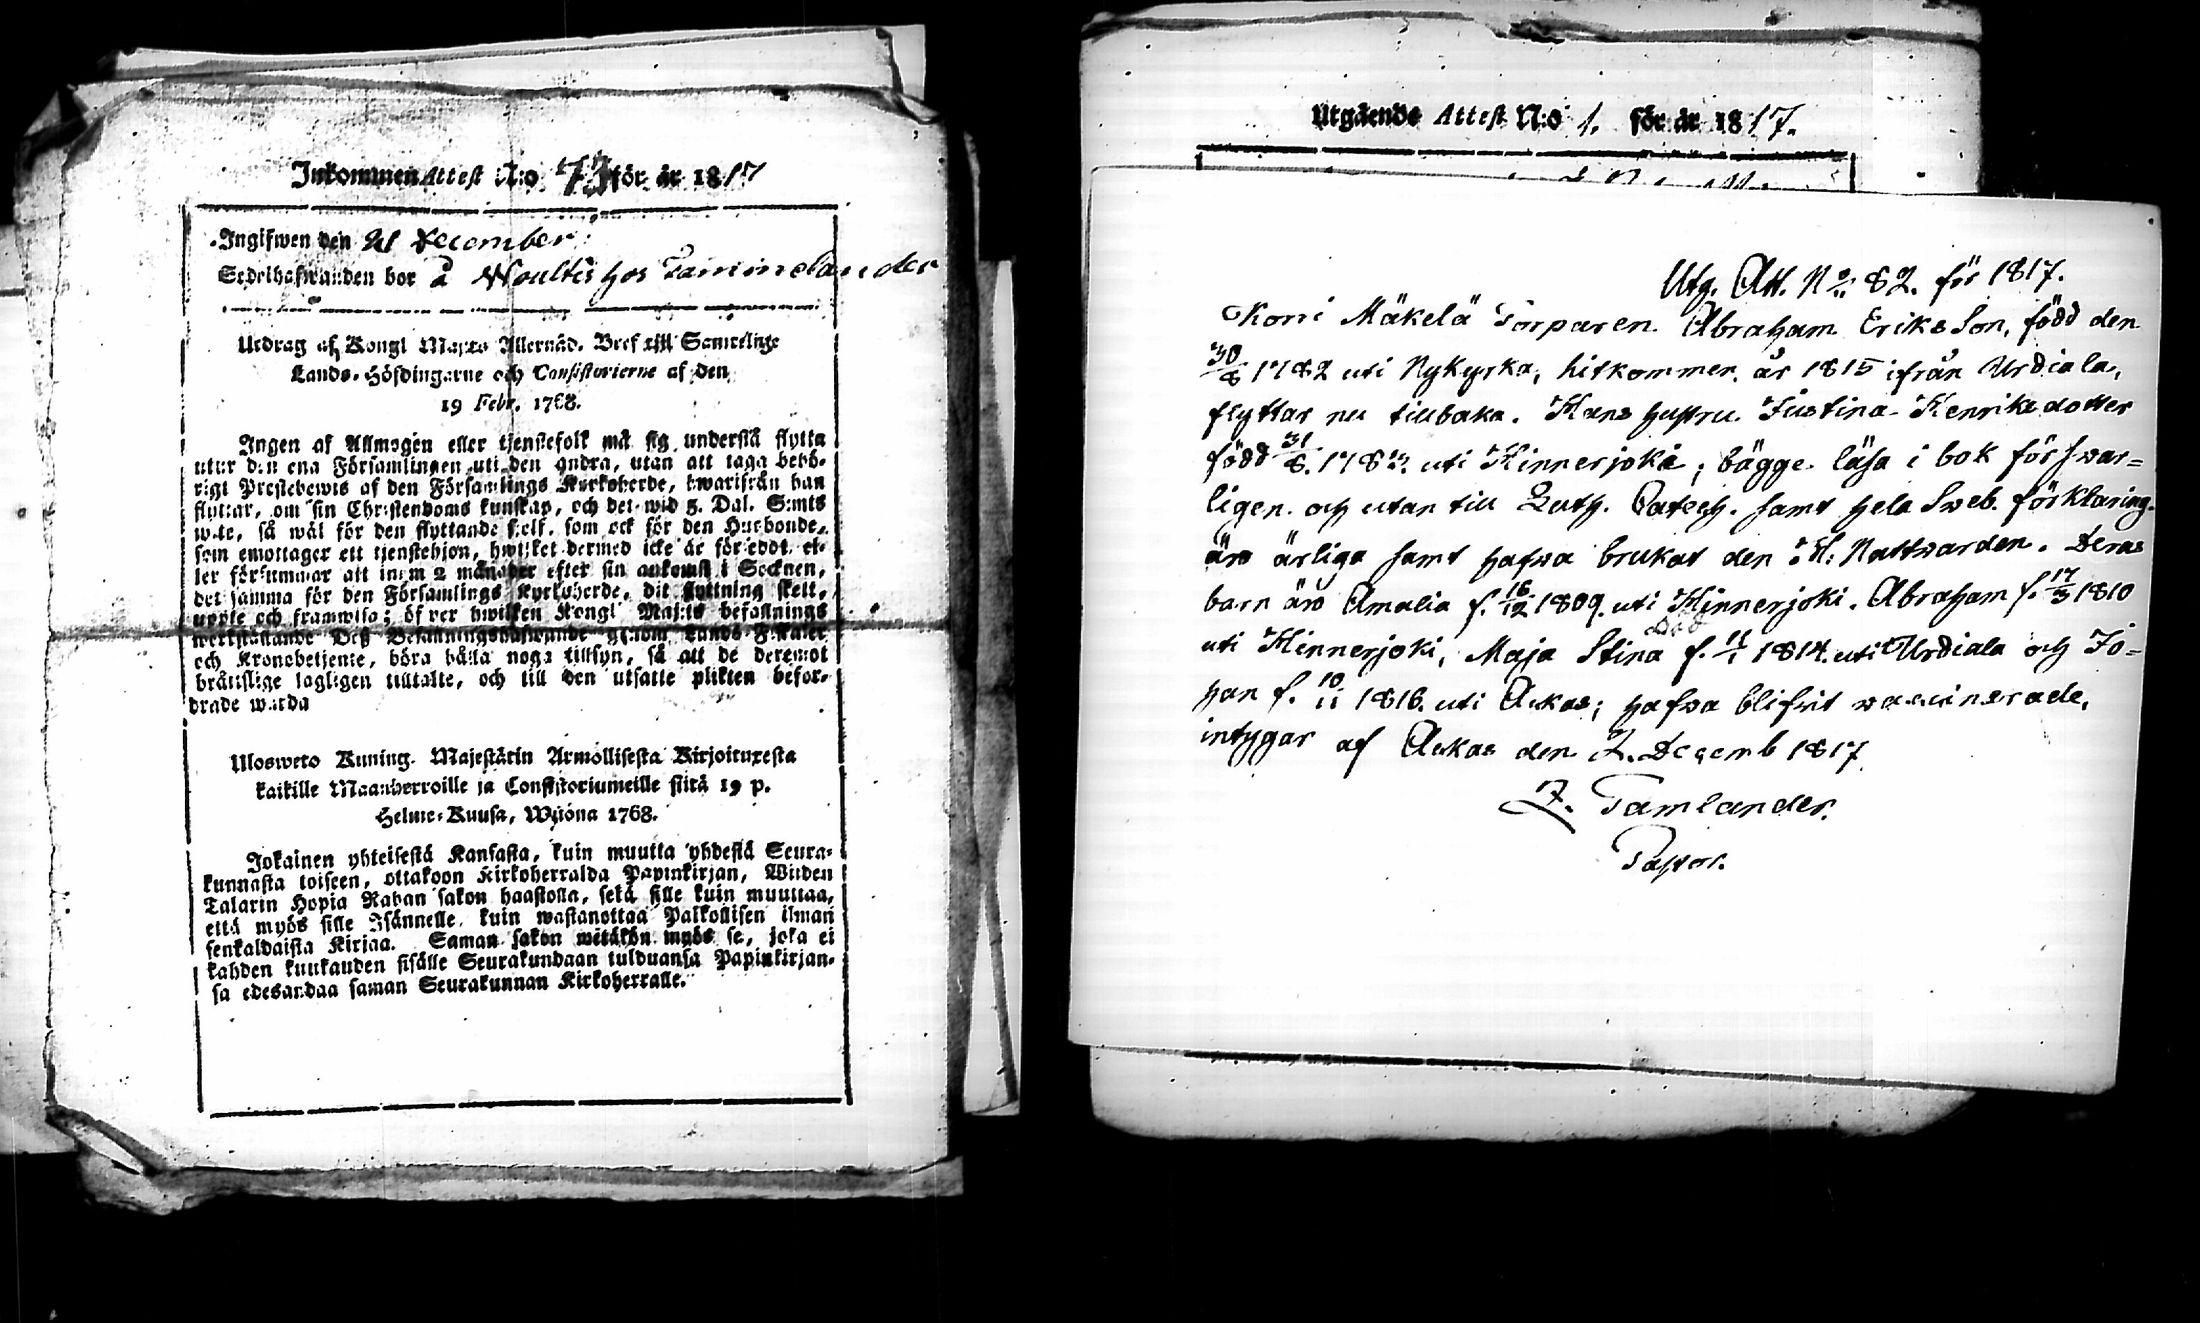 Inkommen Attest N:o 73 för år 1817
Ingifwen den 21 December
Sedelhafwanden bor å Noultis hos Tamminelander
Utdrag af Kongl Maj:ts Allernåd. Bref till Samtelige
Lands-Höfdingarne och Consistorierne af den
19 Febr. 1768.
Ingen af Allmogen eller tjenstefolk må sig understå flytta
utur den ena Församlingen uti den andra, utan att taga behö-
rigt Prestebewis af den Församlings Kyrkoherde, hwarifrån han
flyttar, om sin Christendoms kunskap, och det wid 5. Dal. S:mts
wite, så wäl för den flyttande sjelf, som ock för den Husbonde,
som emottager ett tjenstehjon, hwilket dermed icke är försedt, el-
ler försummar att inom 2 månader efter sin ankomst i Socknen,
det samma för den Församlings Kyrkoherde, dit flyttning skett,
uppte och framwisa; öfwer hwilken Kongl Maj:ts befallnings
werkställande Deß Befallningshafwande genom Lands-Fiskaler
och Kronobetjente, böra hålla noga tillsyn, så att de deremot
bråttslige lagligen tilltalte, och till den utsatte plikten befor-
drade warda
Ulosweto Kuning. Majestätin Armollisesta Kirjoituxesta
kaikille Maanherroille ja Consistoriumeille siitä 19 p.
Helme-Kuusa, Wuona 1768.
Jokainen yhteisestä Kansasta, kuin muutta yhdestä Seura-
kunnasta toiseen, ottakoon Kirkoherralda Papinkirjan, Wiiden
Talarin Hopia Rahan sakon haastolla, sekä sille kuin muuttaa,
että myös sille Isännelle, kuin wastanottaa Palkollisen ilman
senkaldaista Kirjaa. Saman sakon wetäkön myös se, joka ei
kahden kuukauden sisälle Seurakundaan tulduansa Papinkirjan-
sa edesandaa saman Seurakunnan Kirkoherralle.
Utgående Attest N:o 1. för år 1817.
Utg. Att. No 82. för 1817.
Korri Mäkelä Torparen Abraham Eriksson, född den
30/8 1782 uti Nykyrka, hitkommen år 1815 ifrån Urdiala,
flyttar nu tillbaka. Hans hustru Justina Henriksdotter
född 31/8. 1783. uti Hinnerjoki; bägge läsa i bok förswar-
ligen och utan till Luth. Catech. samt hela Sweb. förklaring.
äro ärliga samt hafwa brukat den H: Nattwarden. Deras
barn äro Amalia f. 16/12 1809. uti Hinnerjoki. Abraham f. 17/3 1810
Död
uti Hinnerjoki, Maja Stina f. 11/1 1814. uti Urdiala och Jo-
han f. 10/11 1816. uti Ackas; hafwa blifwit waccinerade,
intygar af Ackas den 2. Decemb 1817
F. Tamlander.
Pastor.